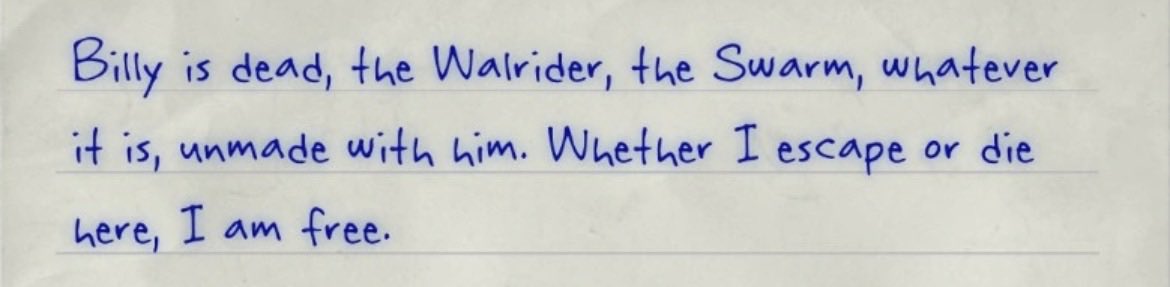 Billy is dead, the Walrider, the Swarm, whatever
it is, unmade with him. Whether I escape or die
here, I am free.